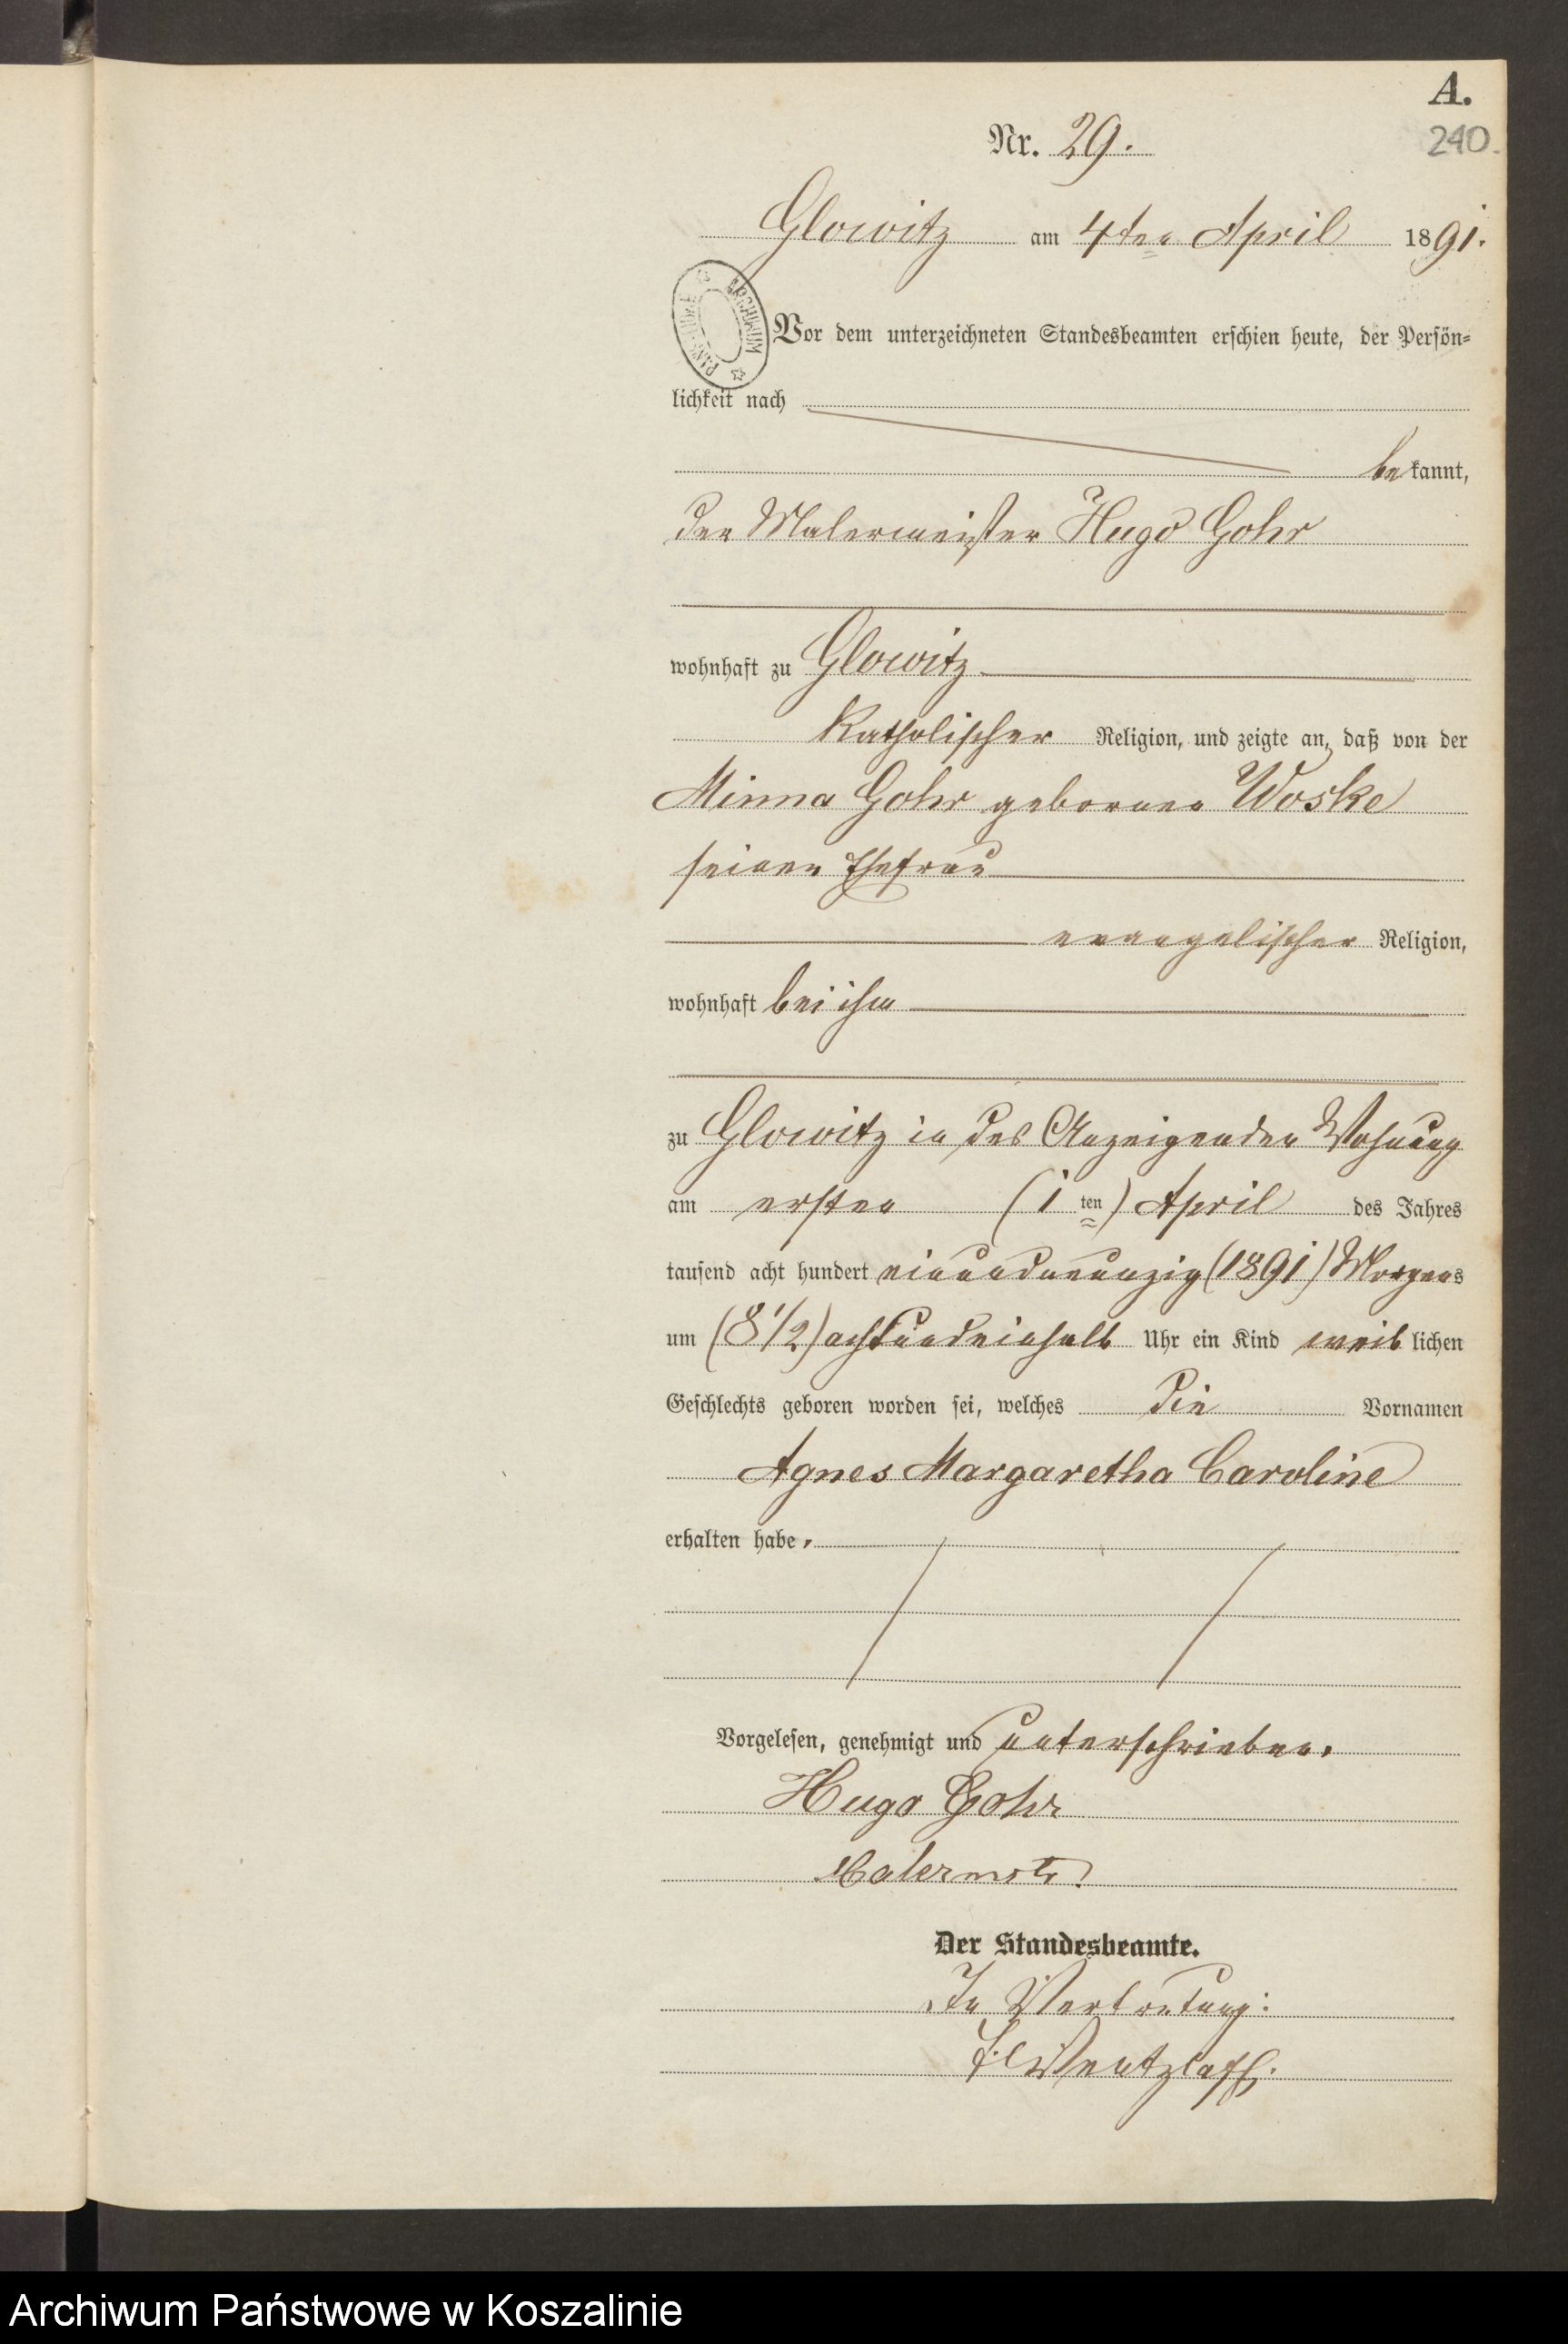 A.
240.
Nr. 29.
Glowitz am 4ten April 1891.
ARCHIWUM PAŃSTWOWE
Vor dem unterzeichneten Standesbeamten erschien heute, der Persön=
lichkeit nach
bekannt,
der Malermeister Hugo Gohr
wohnhaft zu Glowitz
katholischer Religion, und zeigte an, daß von der
Minna Gohr geborner Woske
seiner Ehefrau
evangelischer Religion,
wohnhaft bei ihm
zu Glowitz in des Anzeigenden Wohnung
am ersten (1 ten) April des Jahres
tausend acht hundert einundneunzig (1891) Morgens
um (8 1/2) achtundeinhalb Uhr ein Kind weiblichen
Geschlechts geboren worden sei, welches die Vornamen
Agnes Margaretha Caroline
erhalten habe.
Vorgelesen, genehmigt und unterschrieben.
Hugo Gohr
Malermstr.
Der Standesbeamte.
In Vertretung:
Wentzlaff.
Archiwum Państwowe w Koszalinie